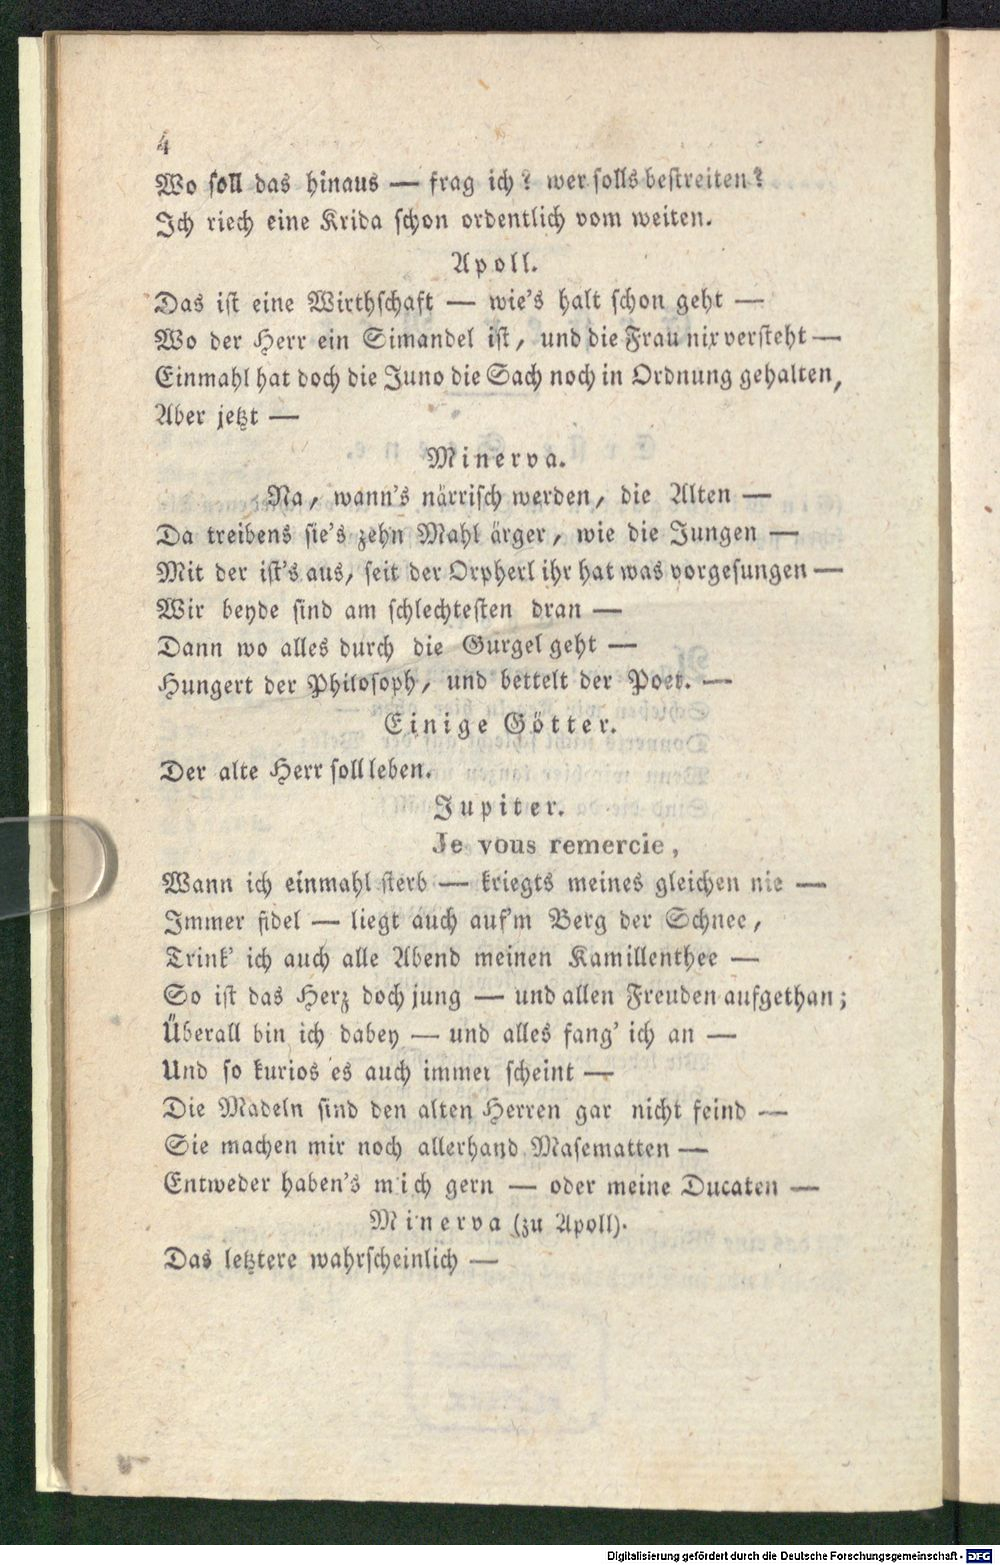 4
Wo soll das hinaus — frag ich? wer solls bestreiten?
Ich riech eine Krida schon ordentlich vom weiten.
Apoll.
Das ist eine Wirthschaft — wie's halt schon geht —
Wo der Herr ein Simandel ist, und die Frau nix versteht —
Einmahl hat doch die Juno die Sach noch in Ordnung gehalten,
Aber jetzt —
Minerva.
Na, wann's närrisch werden, die Alten —
Da treibens sie's zehn Mahl ärger, wie die Jungen —
Mit der ist's aus, seit der Orpherl ihr hat was vorgesungen —
Wir beyde sind am schlechtesten dran —
Dann wo alles durch die Gurgel geht —
Hungert der Philosoph, und bettelt der Poet. —
Einige Götter.
Der alte Herr soll leben.
Jupiter.
Je vous remercie,
Wann ich einmahl sterb — kriegts meines gleichen nie —
Immer fidel — liegt auch auf'm Berg der Schnee,
Trink' ich auch alle Abend meinen Kamillenthee —
So ist das Herz doch jung — und allen Freuden aufgethan;
Überall bin ich dabey — und alles fang' ich an —
Und so kurios es auch immer scheint —
Die Madeln sind den alten Herren gar nicht feind —
Sie machen mir noch allerhand Masematten —
Entweder haben's mich gern — oder meine Ducaten —
Minerva (zu Apoll).
Das letztere wahrscheinlich —
Digitalisierung gefördert durch die Deutsche Forschungsgemeinschaft - DFG